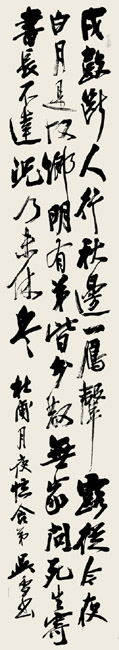 戍鼓斷人行秋邊一雁聲露從今夜
白月是故鄉明有弟皆分散無家問死生寄
書長不達況乃未休兵杜甫月夜憶舍弟